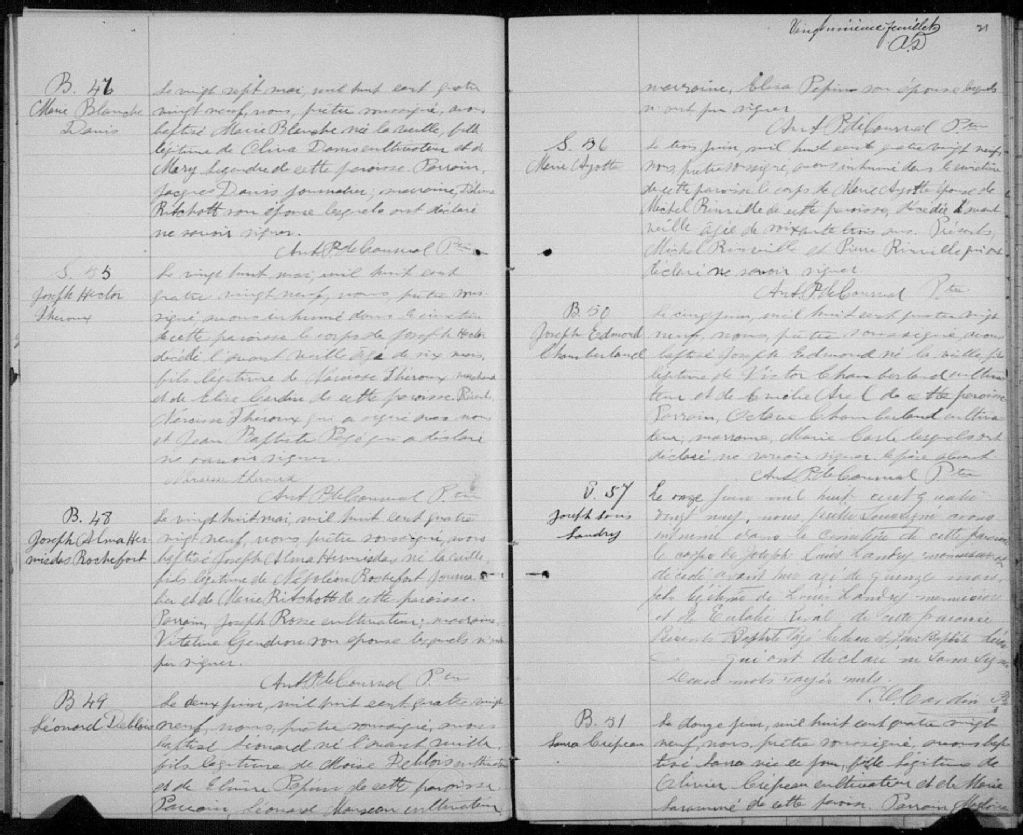 B. 47
Marie Blanche
Danis
Le vingt sept mai, mil huit cent quatre
vingt neuf, nous, prêtre soussigné, avons
baptisé Marie Blanche née la veille, fille
légitime de Oliva Danis cultivateur et de
Mary de cette paroisse. Parrain,
Jacques Danis journalier; marraine,
Ritchott son épouse lesquels ont déclaré
ne savoir signer.
Ant. P. de Courval Ptre
S. 35
Joseph Hector
Theroux
Le vingt huit mai, mil huit cent
quatre vingt neuf, nous, prêtre sous-
signé avons inhumé dans le cimetière
de cette paroisse le corps de Joseph Hector
décédé l'avant veille âgé de six mois,
fils légitime de Narcisse Theroux marchand
et de Elise Cardin de cette paroisse. Présents
Narcisse Theroux qui a signé avec nous
et Jean Baptiste qui a déclaré
ne savoir signer.
Narcisse Theroux
Ant. P. de Courval Ptre
B. 48
Joseph Alma Her-
midas Rochefort
Le vingt huit mai, mil huit cent quatre
vingt neuf, nous, prêtre soussigné, avons
baptisé Joseph Alma Hermidas, né la veille,
fils légitime de Napoléon Rochefort journa-
lier et de Marie Ritchott de cette paroisse.
Parrain, Joseph Rosse cultivateur; marraine,
Vitaline Gendron son épouse lesquels n'ont
pu signer.
Ant. P. de Courval Ptre
B 49
Léonard Deblois
Le deux juin, mil huit cent quatre vingt
neuf, nous, prêtre soussigné, avons
baptisé Léonard né l'avant veille,
fils légitime de Moise Deblois cultivateur
et de Elmire Pépin de cette paroisse
Parrain, Léonard cultivateur
Vingt unième feuillet
21
marraine, Eliza Pepin son épouse lesquels
n'ont pu signer
Ant. P. de Courval Ptre
S. 36
Marie Ayotte
Le trois juin, mil huit cent quatre vingt neuf,
nous, prêtre soussigné, avons inhumé dans le cimetière
de cette paroisse le corps de Marie Ayotte épouse de
Michel Rinville de cette paroisse, décédée l'avant
veille âgée de soixante trois ans. Présents,
Michel Rinville et Pierre Rinville qui ont
déclaré ne savoir signer
Ant. P. de Courval Ptre
B. 50
Joseph Edmond
Chamberland
Le cinq juin, mil huit cent quatre vingt
neuf, nous, prêtre soussigné avons
baptisé Joseph Edmond né la veille, fils
légitime de Victor Chamberland cultiva-
teur et de Emélie Arel de cette paroisse
Parrain, Octave Chamberland cultiva-
teur, marraine, Marie lesquels ont
déclaré ne savoir signer. le père absent.
Ant. P. de Courval Ptre
S. 37
Joseph Louis
Landry
Le onze juin mil huit cent quatre
vingt neuf, nous prêtre soussigné avons
inhumé dans le cimetière de cette paroisse
le corps de Joseph Louis Landry
décédé avant hier agé de quinze mois,
fils légitime de Louis Landry menuisier
et de Eulalie de cette paroisse
Présents Baptiste bedeau et Jean Baptiste
qui ont déclaré ne savoir signer
Deux mots rayés nuls.
Cardin Ptre
B. 51
Laura Crépeau
Le douze juin, mil huit cent quatre vingt
neuf, nous, prêtre soussigné, avons bap-
tisé Laura née ce jour, fille légitime de
Olivier Crépeau cultivateur et de Marie
de cette paroisse. Parrain